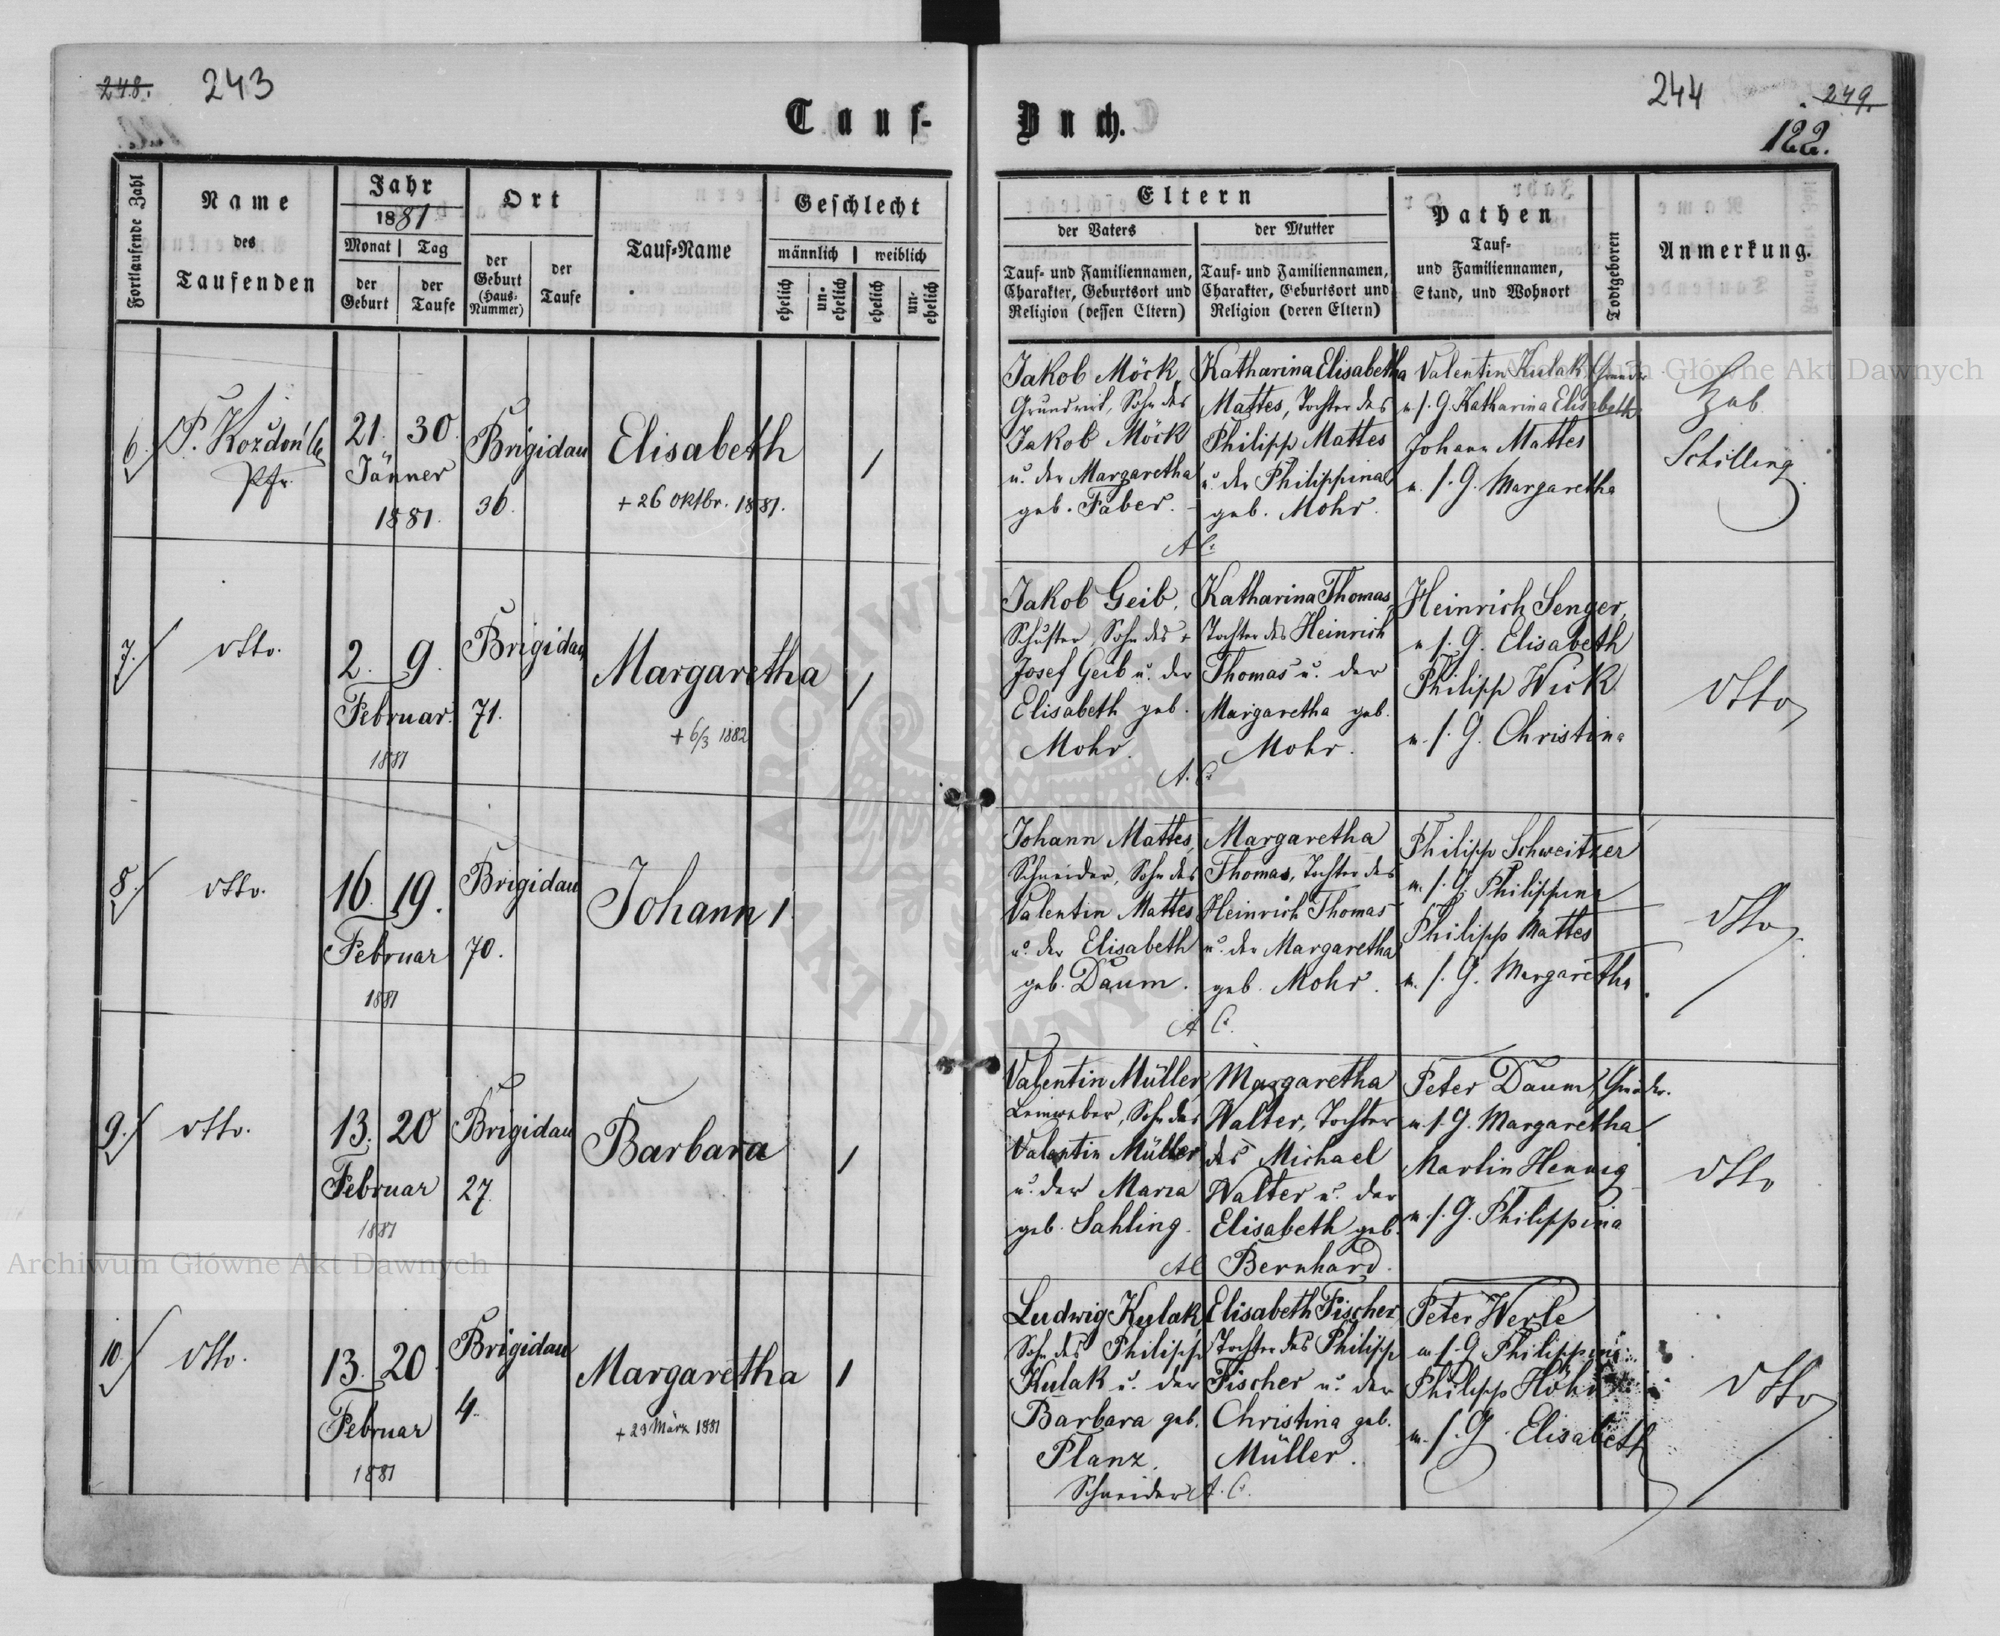 248. 243
244 249.
122.
Tauf-Buch.
Fortlaufende Zahl
Name des Taufenden
Jahr 1881
Monat Tag
der Geburt
der Taufe
Ort
der Geburt (Haus-Nummer)
der Taufe
Tauf-Name
Geschlecht
männlich weiblich
ehelich un-ehelich ehelich un-ehelich
Eltern
der Vaters
Tauf- und Familiennamen, Charakter, Geburtsort und Religion (dessen Eltern)
der Mutter
Tauf- und Familiennamen, Charakter, Geburtsort und Religion (deren Eltern)
Pathen
Tauf- und Familiennamen, Stand, und Wohnort
Todtgeboren
Anmerkung.
6.
Pfr.
21. 30.
Jänner
1881.
Brigidau
36.
Elisabeth
+ 26 Oktbr. 1881.
1
Jakob Möck,
Grundwirt, Sohn des
Jakob Möck
u. der Margaretha
geb. Faber.
Katharina Elisabetha
Mattes, Tochter des
Philipp Mattes
u. der Philippina
geb. Mohr.
A. C.
Valentin Kulak
u. s. G. Katharina Elisabeth
Johann Mattes
u. s. G. Margaretha
Heb.
Schilling.
7.
dtto.
2. 9.
Februar.
1881
Brigidau
71.
Margaretha
+ 6/3 1882
1
Jakob Geib,
Schuster, Sohn des +
Josef Geib u. der
Elisabeth geb.
Mohr.
Katharina Thomas,
Tochter des Heinrich
Thomas u. der
Margaretha geb.
Mohr.
A. C.
Heinrich Senger,
u. s. G. Elisabeth
Philipp Wick
u. s. G. Christina
dtto
8.
dtto.
16. 19.
Februar
1881
Brigidau
70.
Johann 1
Johann Mattes,
Schneider, Sohn des
Valentin Mattes
u. der Elisabeth
geb. Daum.
Margaretha
Thomas, Tochter des
Heinrich Thomas
u. der Margaretha
geb. Mohr.
A. C.
Philipp Schweitzer
u. s. G. Philippina
Philipp Mattes
u. s. G. Margaretha
dtto
9.
dtto.
13. 20
Februar
1881
Brigidau
27.
Barbara
1
Valentin Müller,
Leinweber, Sohn des
Valentin Müller
u. der Maria
geb. Sahling.
Margaretha
Walter, Tochter
des Michael
Walter u. der
Elisabeth geb.
Bernhard.
A C
Peter Daum,
u. s. G. Margaretha
Martin Hennig
u. s. G. Philippina
dtto
10.
dtto.
13. 20.
Februar
1881
Brigidau
4.
Margaretha
+ 29 März 1881
1
Ludwig Kulak
Sohn des Philipp
Kulak u. der
Barbara geb.
Planz.
Schneider
Elisabeth Fischer,
Tochter des Philipp
Fischer u. der
Christina geb.
Müller.
A. C.
Peter Werle
u. s. G. Philippina
Philipp
u. s. G. Elisabeth
dtto
Archiwum Główne Akt Dawnych
Archiwum Główne Akt Dawnych
ARCHIWUM
AKT DAWNYCH